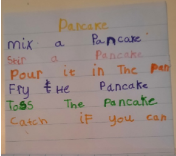 Pancake
mix a Pancake
Stir a Pancake
Pour it in The Pan
Fry tHe Pancake
ToSS The Pancake
Catch iF you can